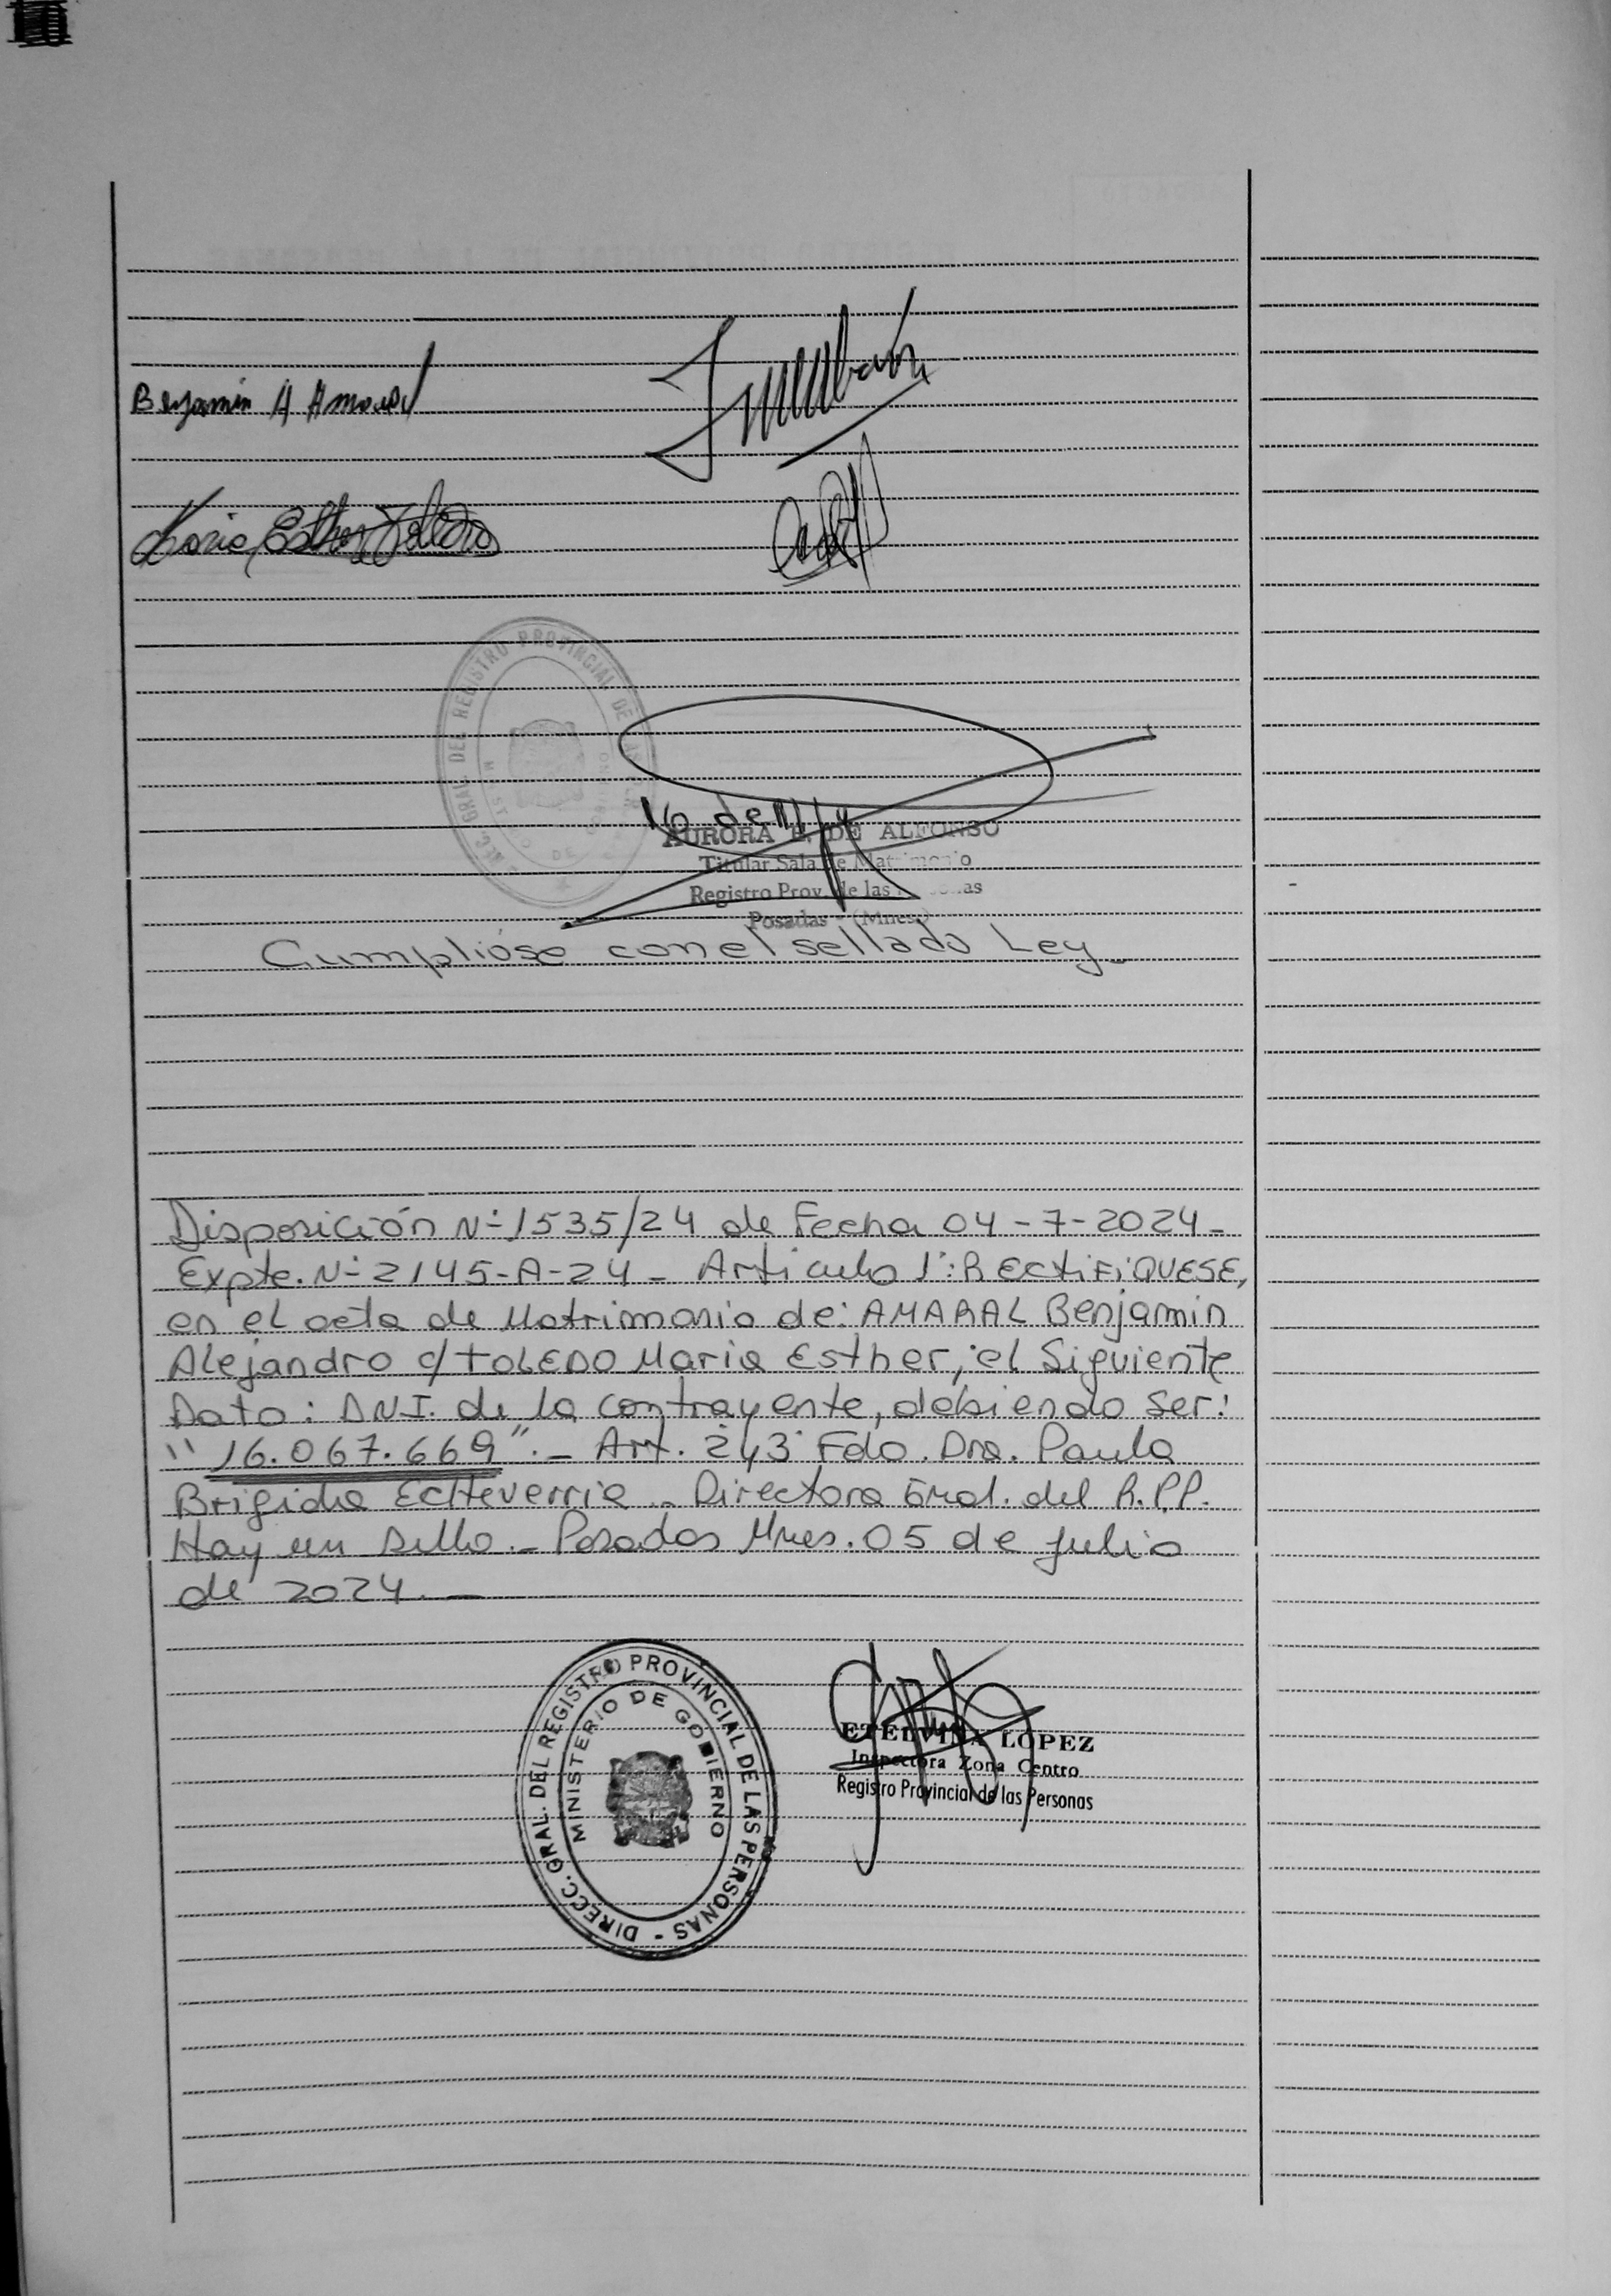 Benjamin A Amaral
Maria Esther Toledo
DEL REGISTRO PROVINCIAL DE
AURORA E. DE ALFONSO
Titular Sala de Matrimonio
Registro Prov. de las
Posadas - (Mnes.)
Cumplióse con el sellado Ley_
Disposición Nº 1535/24 de Fecha 04-7-2024_
Expte. Nº 2145-A-24_ Articulo 1º: RECTIFIQUESE,
en el acta de Matrimonio de: AMARAL Benjamin
Alejandro c/ TOLEDO Maria Esther, el Siguiente
Dato: DNI. de la contrayente, debiendo ser:
"16.067.669"._ Art. 2y3 Fdo. Dra. Paula
Brigida Echeverria_ Directora Gral. del R.P.P.
Hay un sello._ Posadas Mnes. 05 de julio
de 2024._
DIRECC. GRAL. DEL REGISTRO PROVINCIAL DE LAS PERSONAS -
MINISTERIO DE GOBIERNO
ETELVINA LOPEZ
Inspectora Zona Centro
Registro Provincial de las Personas